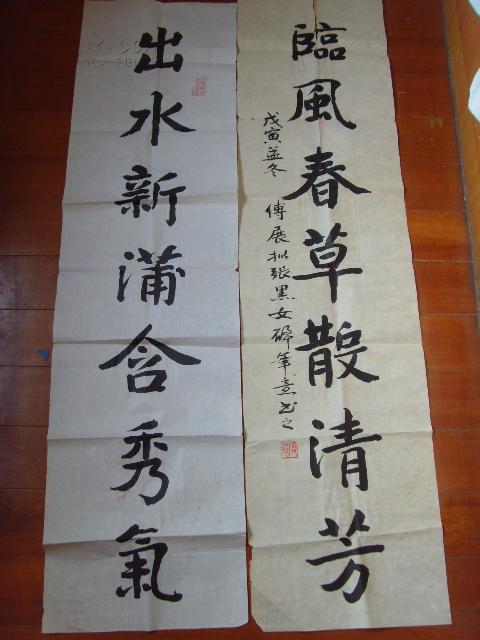 臨風春草散清芳
戊寅益冬
傅展拟張黑女碑筆意書之
出水新蒲含秀氣